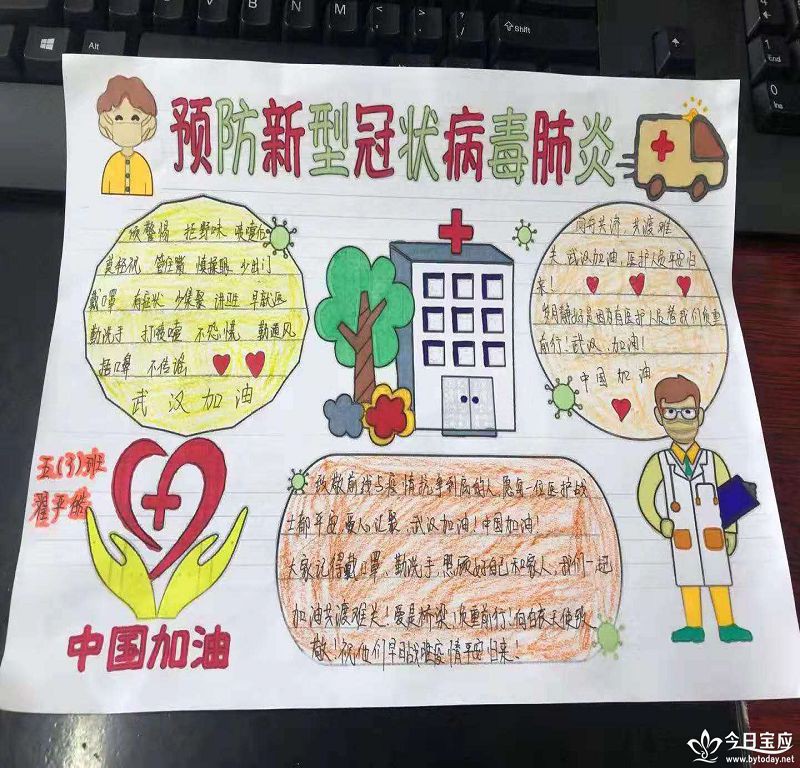 预防新型冠状病毒肺炎
预警惕 拒野味 咳嗽位
莫轻视 管住嘴 慎接眼 少出门
戴口罩 有症状 少集聚 讲卫生 早就医
勤洗手 打喷嚏 不恐慌 勤通风
捂口鼻 不传谣
武汉加油
同舟共济 共渡难
关 武汉加油 医护人员平安归
来！
岁月静好是因为有医护人员替我们负重
前行！武汉、加油！
中国加油
五(3)班
致敬前线与疫情抗争到底的人 愿每一位医护战
士都平安 爱心汇聚 武汉加油！中国加油！
大家记得戴口罩、勤洗手、照顾好自己和家人，我们一起
加油共渡难关！爱是桥梁！负重前行！向白衣天使致
敬！祝他们早日战胜疫情平安归来！
中国加油
Alt
Shift
1
End
0
Ins
今日宝应
www.bytoday.net